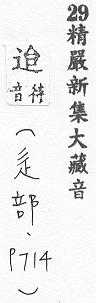 29精嚴新集大藏音
迨
音待
（辵部、P714）